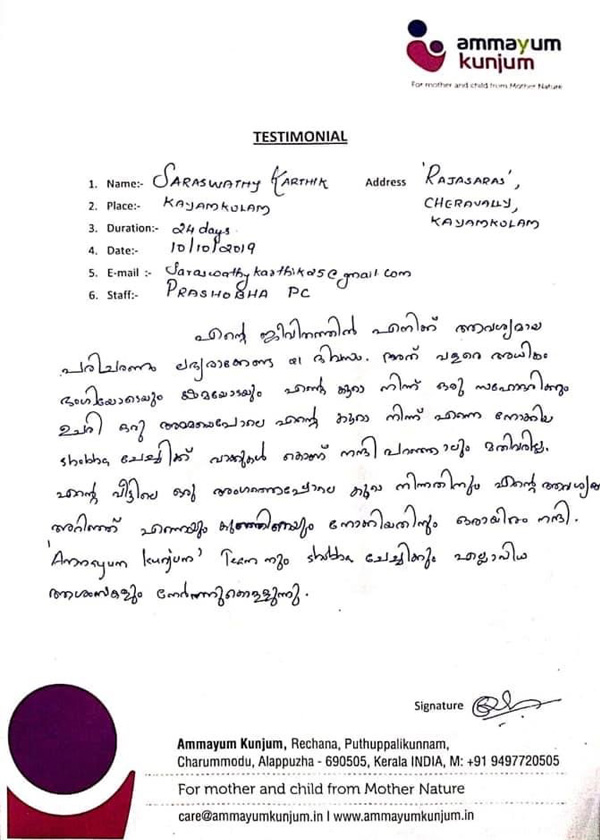 ammayum
kunjum
For mother and child from Mother Nature
TESTIMONIAL
1. Name:- SARASWATHY KARTHIK Address 'RAJASARAS',
2. Place:- KAYAMKULAM CHERAVALLY,
KAYAMKOLAM
3. Duration:- 24 days
4. Date:- 10/10/2019
5. E-mail :-
6. Staff:- PRASHOBHA PC
എന്റെ ജീവിതത്തിൽ എനിക്ക് ആവശ്യമായ
പരിചരണം ദിവസം. അത് വളരെ അധികം
എന്റെ കൂടെ നിന്ന് ഒരു
ഒരു എന്റെ കൂടെ നിന്ന് എന്നെ നോക്കിയ
shobha ചേച്ചിക്ക് വാക്കുകൾ കൊണ്ട് നന്ദി പറഞ്ഞാലും മതിവരില്ല.
എന്റെ വീട്ടിലെ ഒരു അംഗത്തെപ്പോലെ കൂടെ നിന്നതിനും എന്റെ
അറിഞ്ഞ് എന്നെയും കുഞ്ഞിനെയും നോക്കിയതിനും ഒരായിരം നന്ദി.
'Ammayum kunjum' Team നും shobha ചേച്ചിക്കും എല്ലാവിധ
ആശംസകളും നേർന്നുകൊള്ളുന്നു.
Signature
Ammayum Kunjum, Rechana, Puthuppalikunnam,
Charummodu, Alappuzha - 690505, Kerala INDIA, M: +91 9497720505
For mother and child from Mother Nature
care@ammayumkunjum.in I www.ammayumkunjum.in